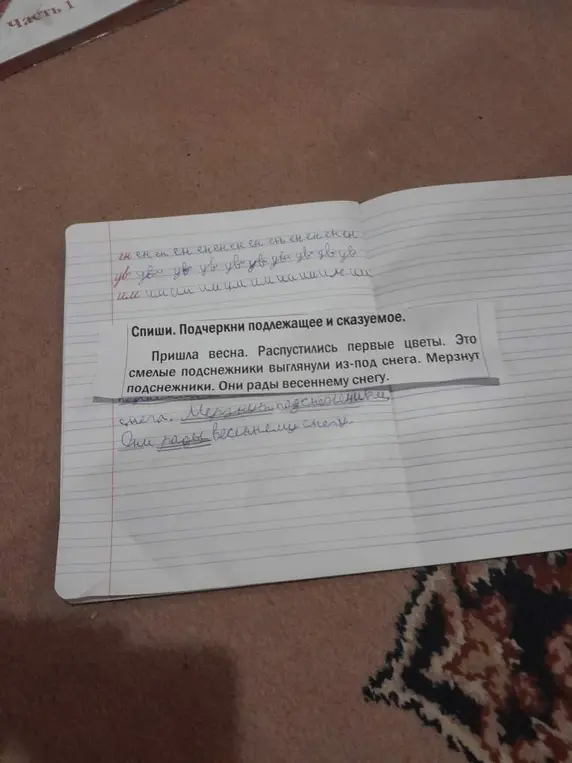 Часть 1
ен ен ен ен ен ен ен ен ен ен ен
ув ув ув ув ув ув ув ув ув ув
им им им им им им им им им
Спиши. Подчеркни подлежащее и сказуемое.
Пришла весна. Распустились первые цветы. Это
смелые подснежники выглянули из-под снега. Мерзнут
подснежники. Они рады весеннему снегу.
снега. Мерзнут подснежники.
Они рады весеннему снегу.